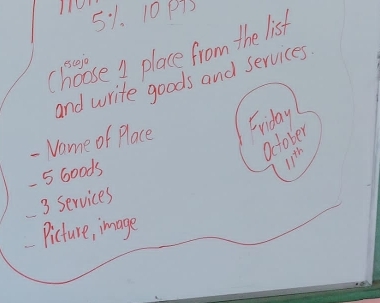 5%. 10 pts
Choose 1 place from the list
and write goods and services.
- Name of Place
- 5 Goods
- 3 Services
- Picture, image
Friday
October
11th